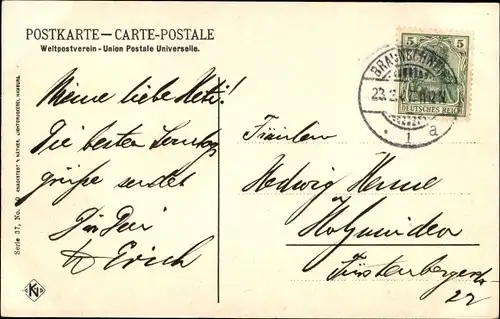 POSTKARTE — CARTE-POSTALE
Weltpostverein - Union Postale Universelle.
5 5
DEUTSCHES REICH
BRAUNSCHWEIG
23.
1 a
Meine liebe Heti!
Die besten Sonntags
grüße sendet
Dir Dein
Erich
Fräulein
Hedwig Henne
Holzminden
Fürstenbergerstr
22
Serie 37, No.
KNACKSTEDT & NÄTHER, LICHTDRUCKEREI, HAMBURG.